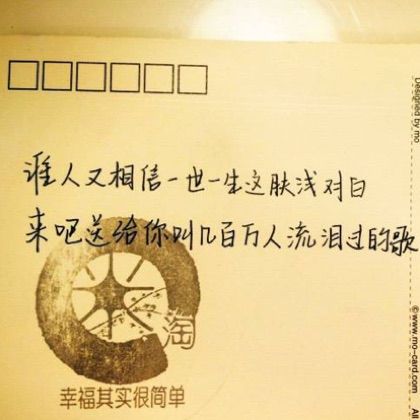 Designed by mo
谁人又相信一世一生这肤浅对白
来吧送给你叫几百万人流泪过的歌
淘
幸福其实很简单
©www.mo-card.com